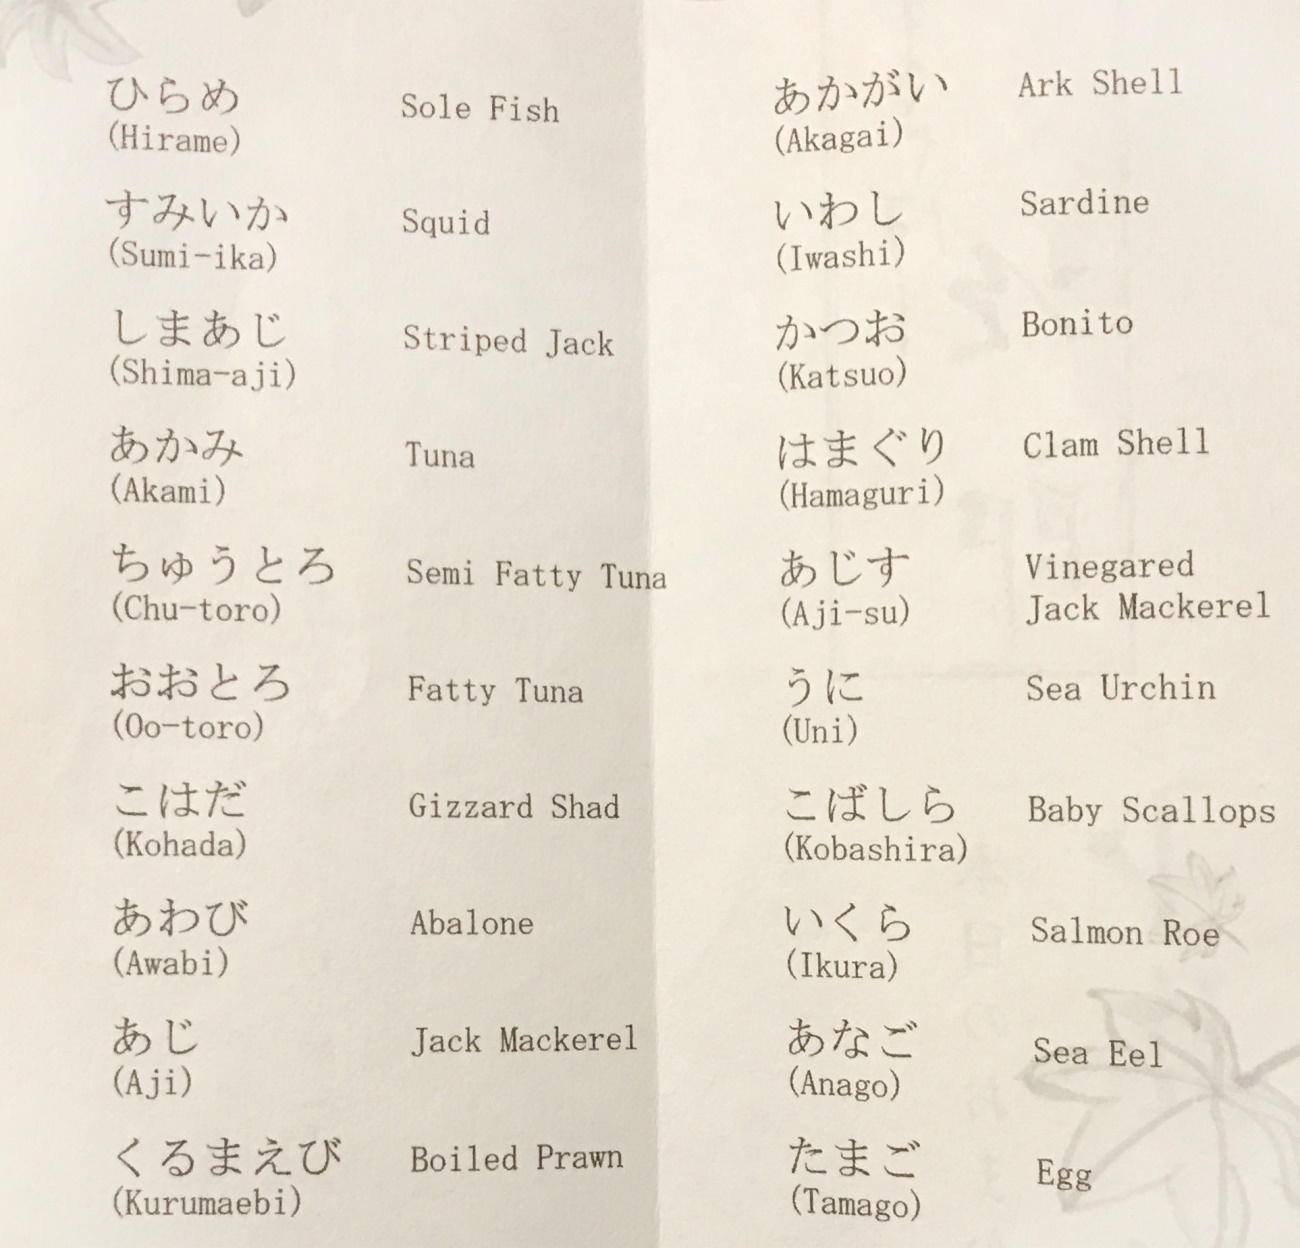 ひらめ Sole Fish
(Hirame)
すみいか Squid
(Sumi-ika)
しまあじ Striped Jack
(Shima-aji)
あかみ Tuna
(Akami)
ちゅうとろ Semi Fatty Tuna
(Chu-toro)
おおとろ Fatty Tuna
(Oo-toro)
こはだ Gizzard Shad
(Kohada)
あわび Abalone
(Awabi)
あじ Jack Mackerel
(Aji)
くるまえび Boiled Prawn
(Kurumaebi)
あかがい Ark Shell
(Akagai)
いわし Sardine
(Iwashi)
かつお Bonito
(Katsuo)
はまぐり Clam Shell
(Hamaguri)
あじす Vinegared
(Aji-su) Jack Mackerel
うに Sea Urchin
(Uni)
こばしら Baby Scallops
(Kobashira)
いくら Salmon Roe
(Ikura)
あなご Sea Eel
(Anago)
たまご Egg
(Tamago)